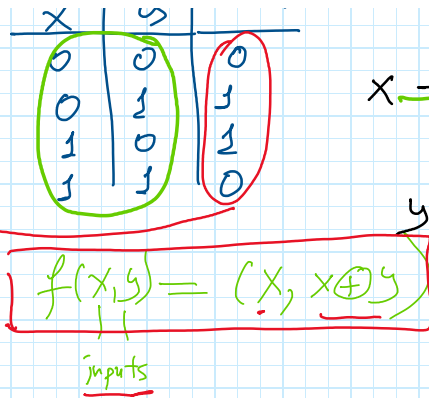 x y
0 0 0
0 1 1
1 0 1
1 1 0
x
y
f(x,y) = (x, x⊕y)
inputs